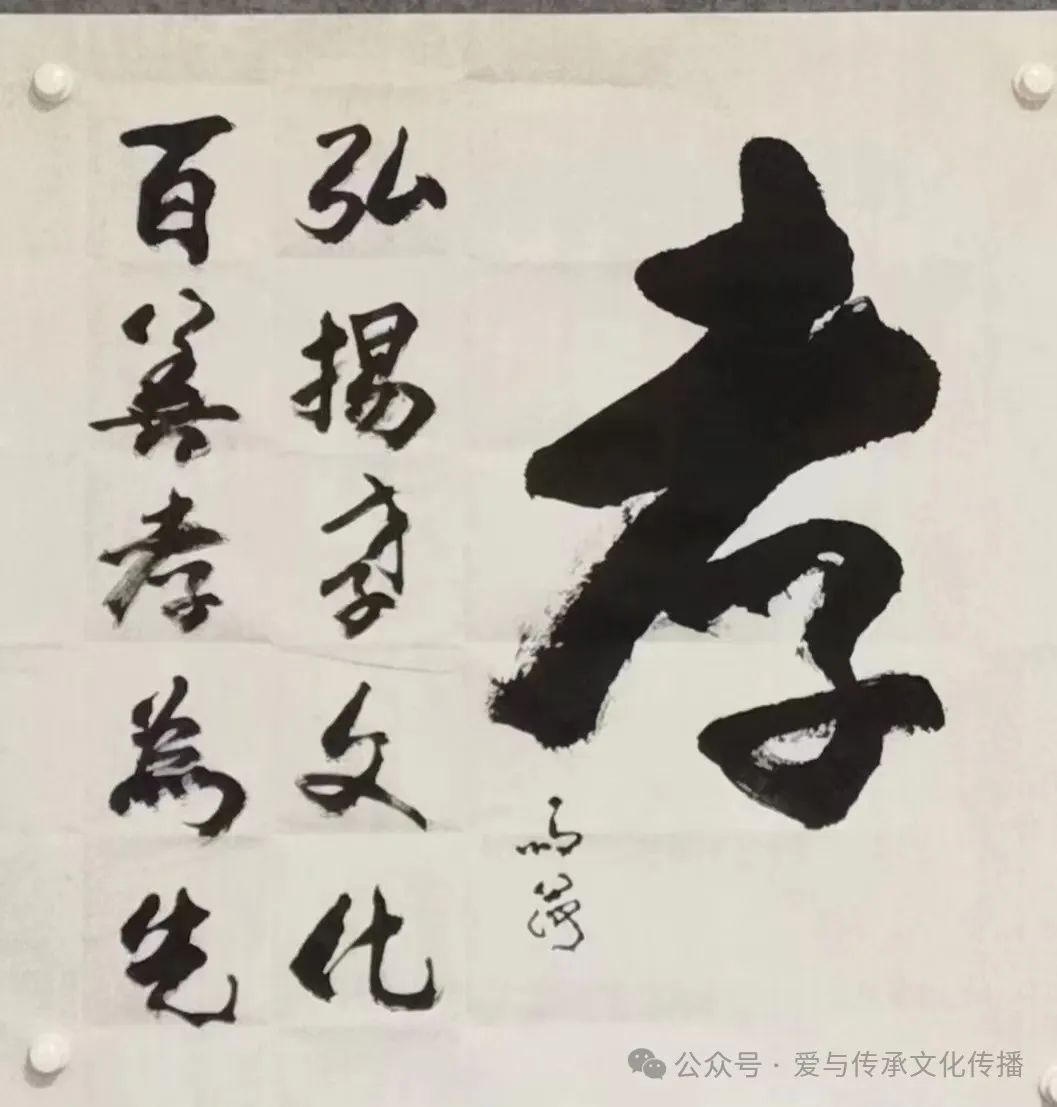 孝
弘揚孝文化
百善孝為先
公众号 · 爱与传承文化传播